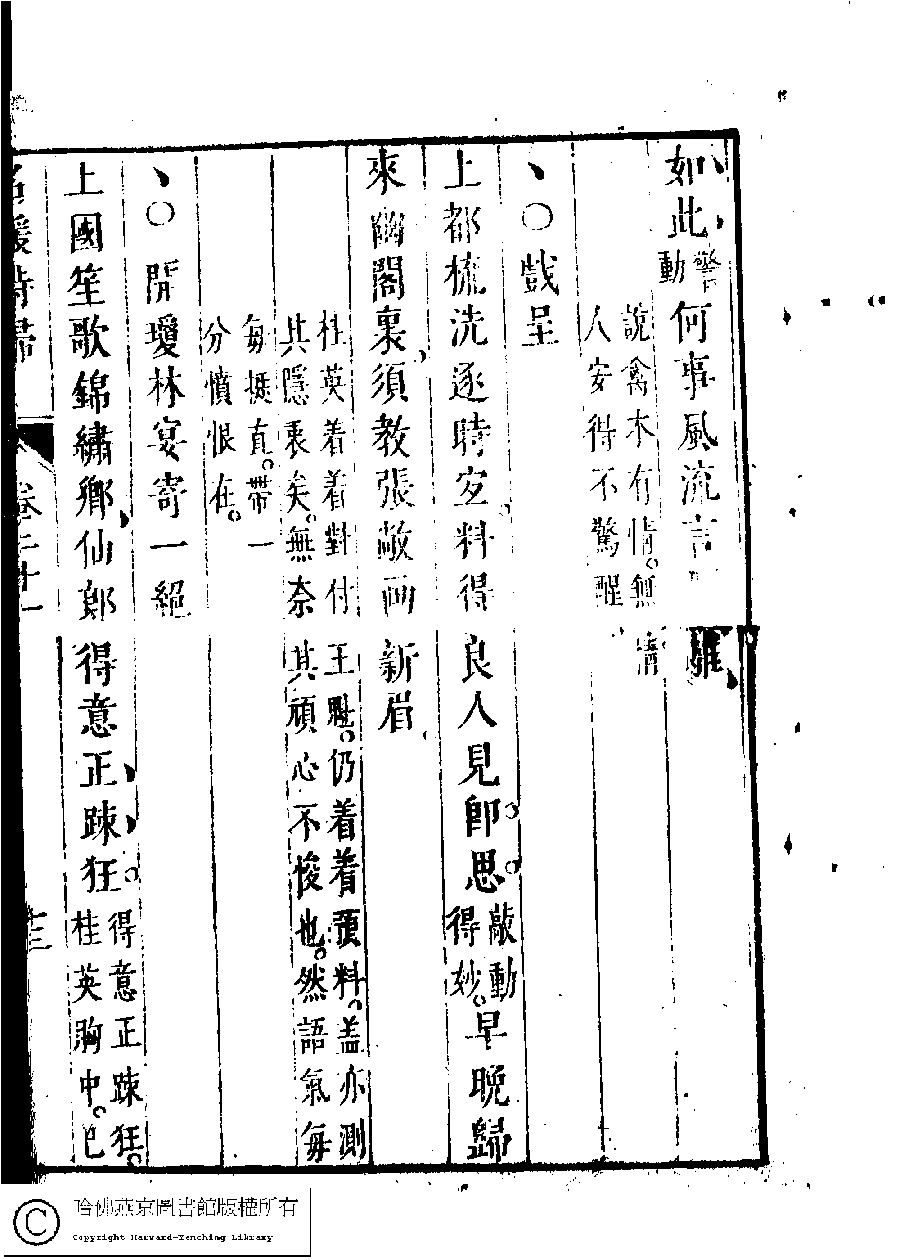 如此警動何事風流言
說禽木有情。無情
人安得不驚醒
○戲呈
上都梳洗逐時宜料得良人見即思敲動得妙。早晚歸
來幽閣裏須教張敞画新眉
桂英着着對付王魁。仍着着預料。盖亦測
其隱衷矣。無奈其頑心不悛也。然語氣每
每挺直。帶一
分憤恨在。
○聞瓊林宴寄一絕
上國笙歌錦繡鄉仙郎得意正踈狂得意正踈狂。桂英胸中。已
名媛詩歸
卷二十一
十三
哈佛燕京圖書館版權所有
Copyright Harvard-Yenching Library